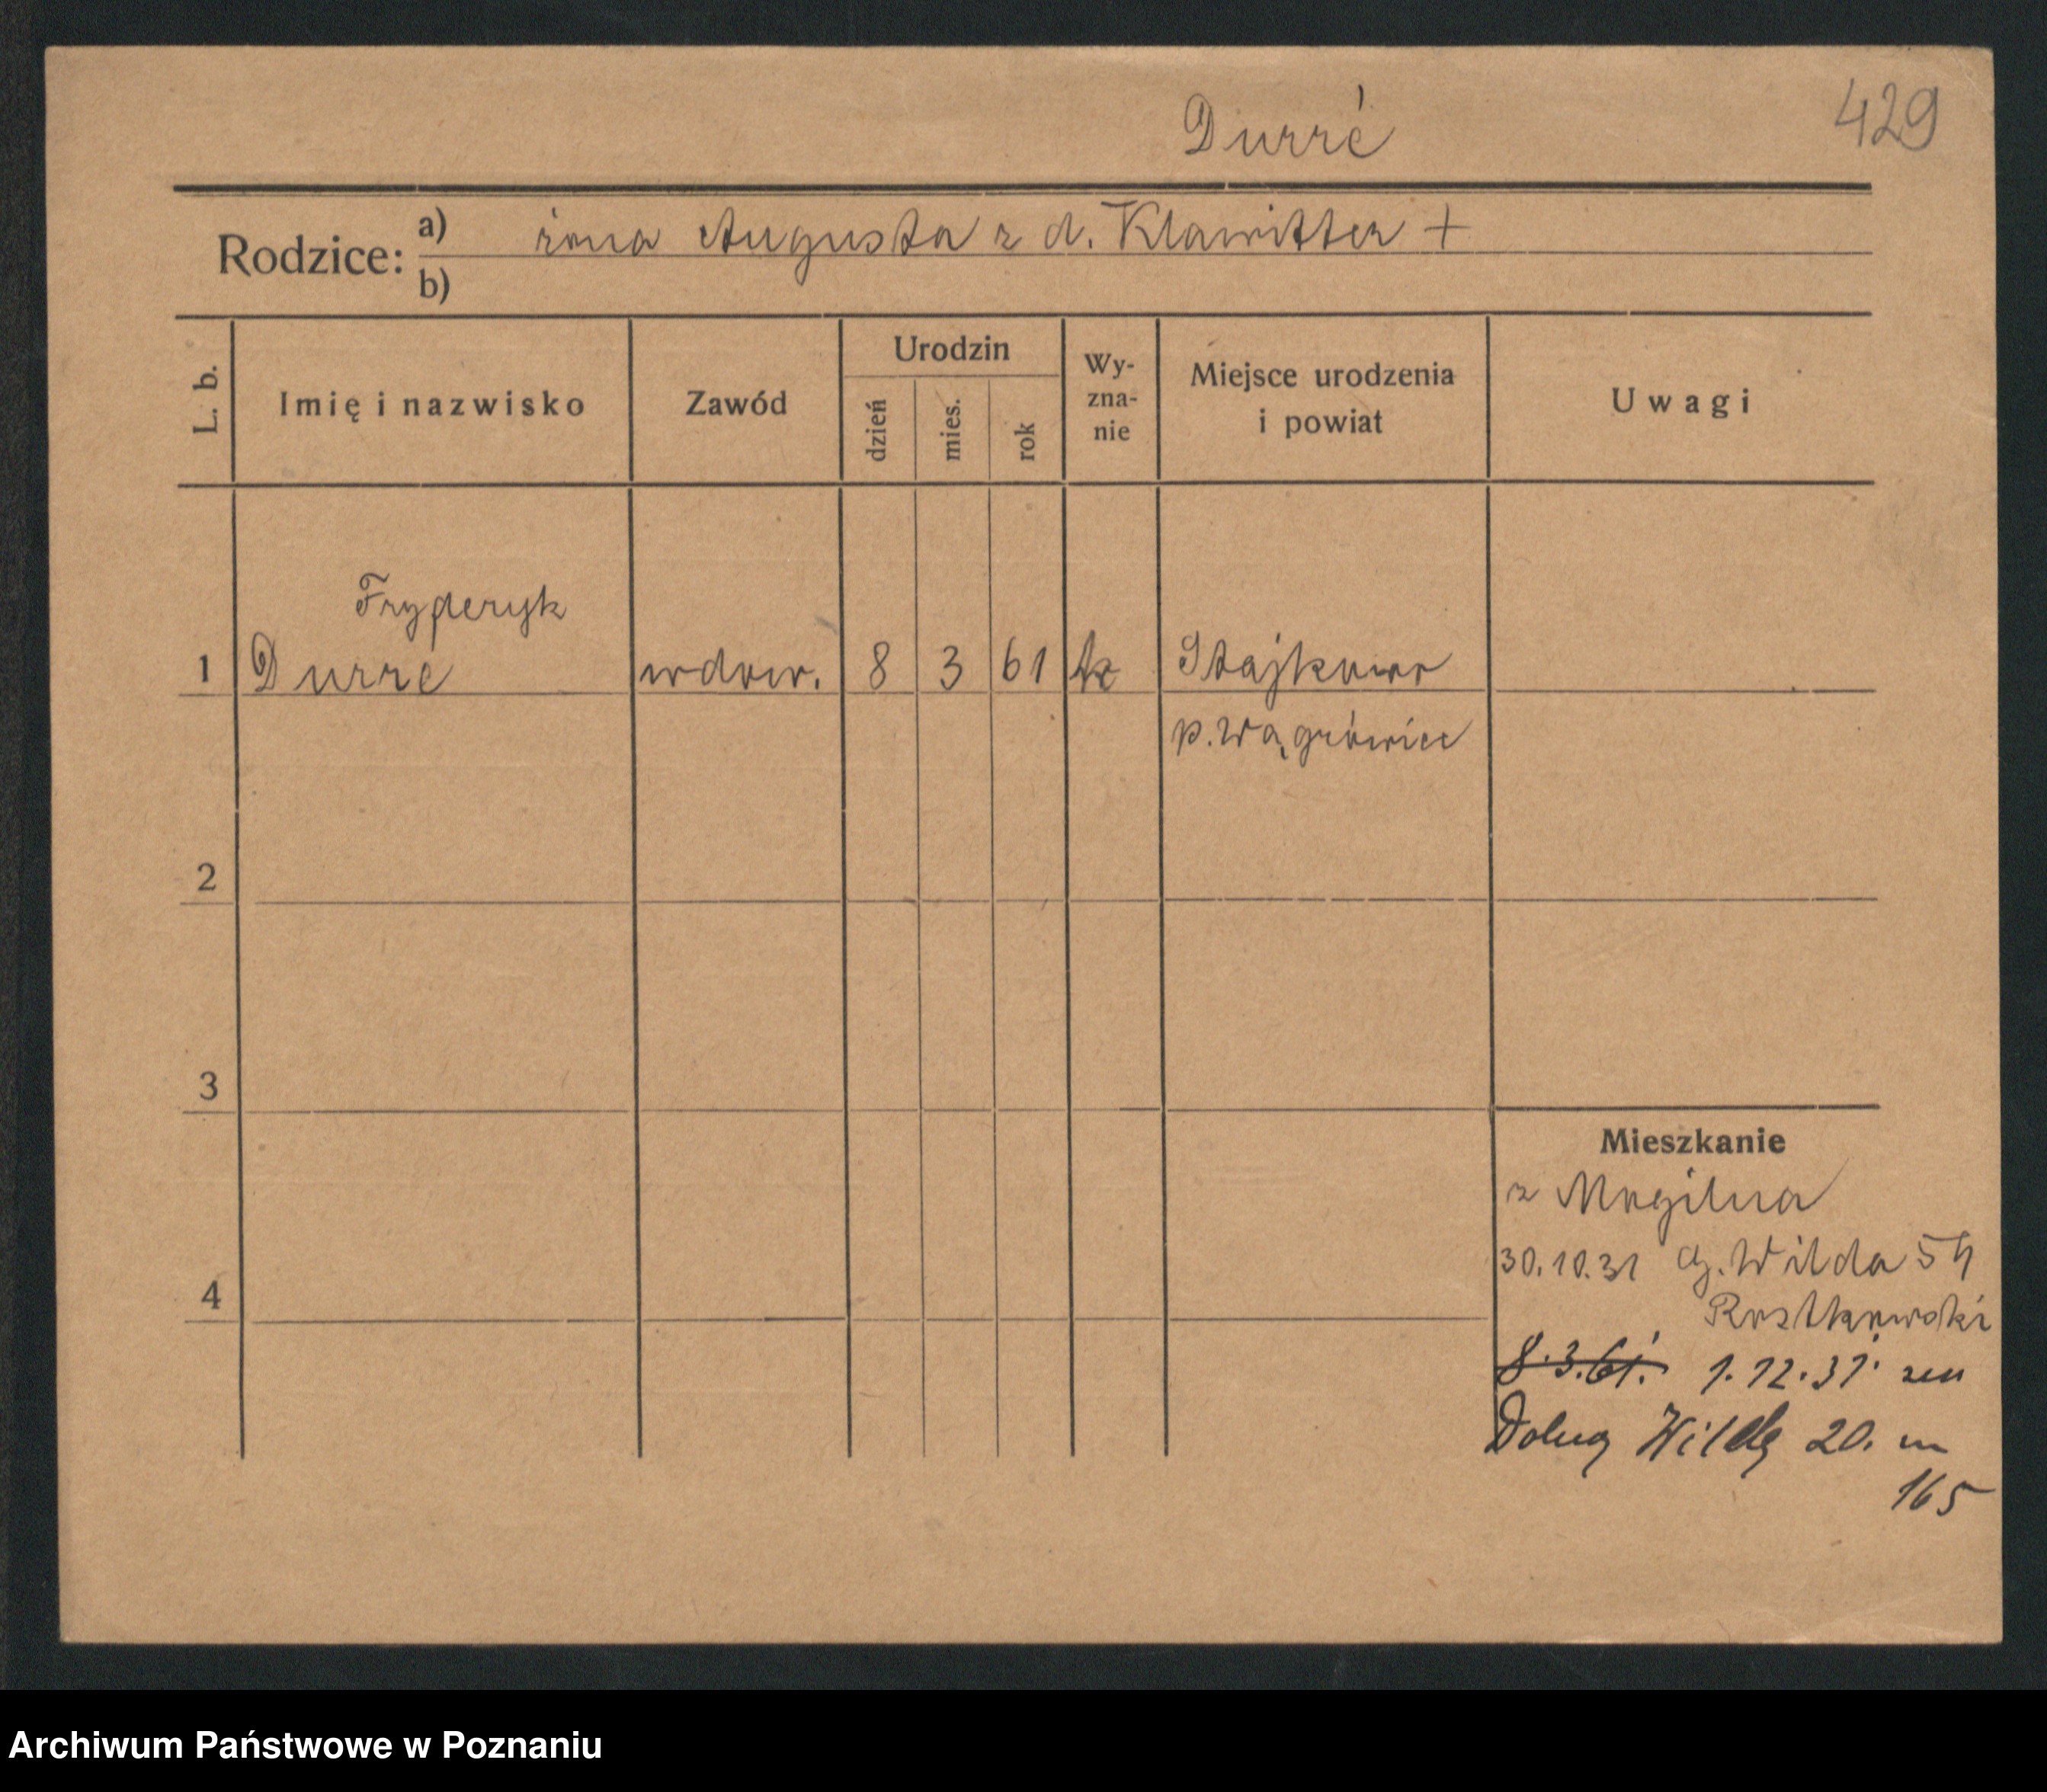 Durré
429
Rodzice:
a) żona Augusta z d. Klawitter +
b)
L. b.
Imię i nazwisko
Zawód
Urodzin
dzień
mies.
rok
Wy-
zna-
nie
Miejsce urodzenia
i powiat
Uwagi
Fryderyk
1 Durre wdow. 8 3 61 Stajkowo
p. Wągrówiec
2
3
4
Mieszkanie
z Mogilna
30.10.31 G. Wilda 54
Rostkowski
8.3.61. 1.12.31.
Dolną Wildę 20. m
165
Archiwum Państwowe w Poznaniu